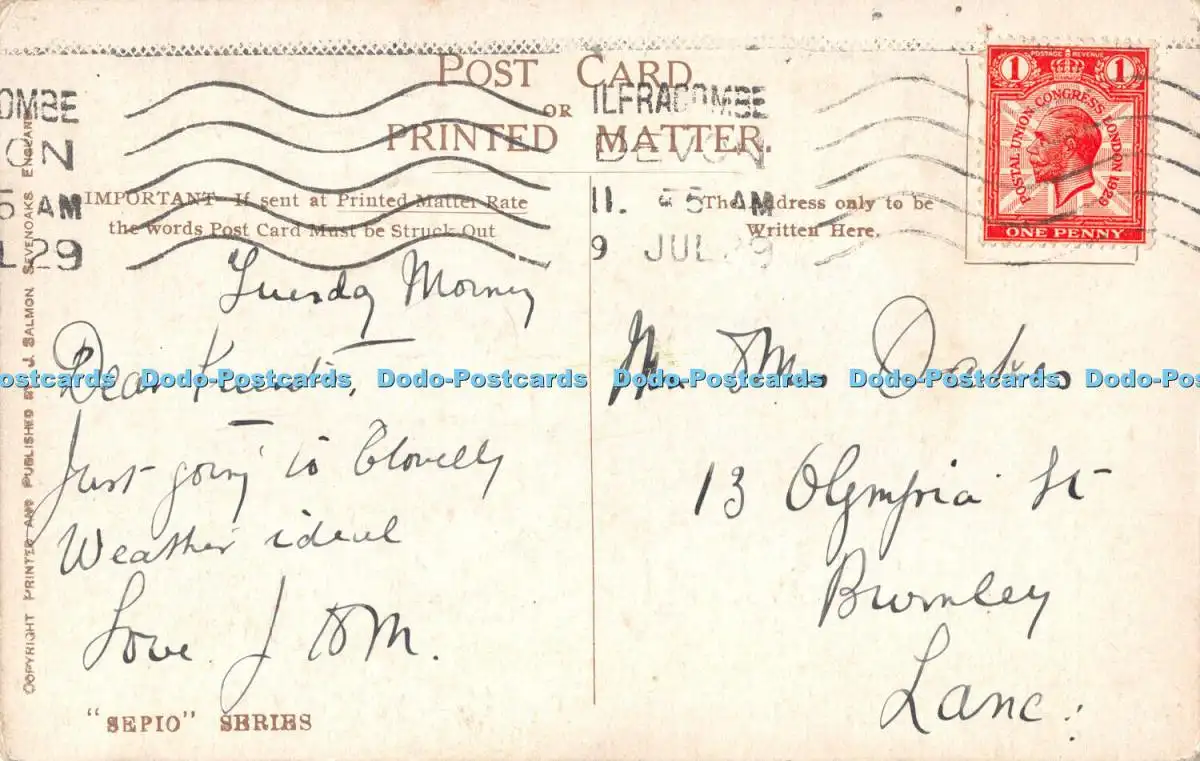 POST CARD
OR
PRINTED MATTER.
IMPORTANT If sent at Printed Matter Rate
the words Post Card Must be Struck Out
The Address only to be
Written Here.
OMBE
ON
5 AM
L 29
ILFRACOMBE
DEVON
11. 5 AM
9 JUL 29
1 POSTAGE REVENUE 1
POSTAL UNION CONGRESS LONDON 1929
ONE PENNY
Tuesday Morning
Dear
Just going to Clovelly
Weather ideal
Love J & M.
Mr & Mrs
13 Olympia St
Burnley
Lanc:
"SEPIO" SERIES
COPYRIGHT PRINTED AND PUBLISHED BY J SALMON SEVENOAKS ENGLAND
ostcards Dodo-Postcards Dodo-Postcards Dodo-Postcards Dodo-Postcards Dodo-Pos